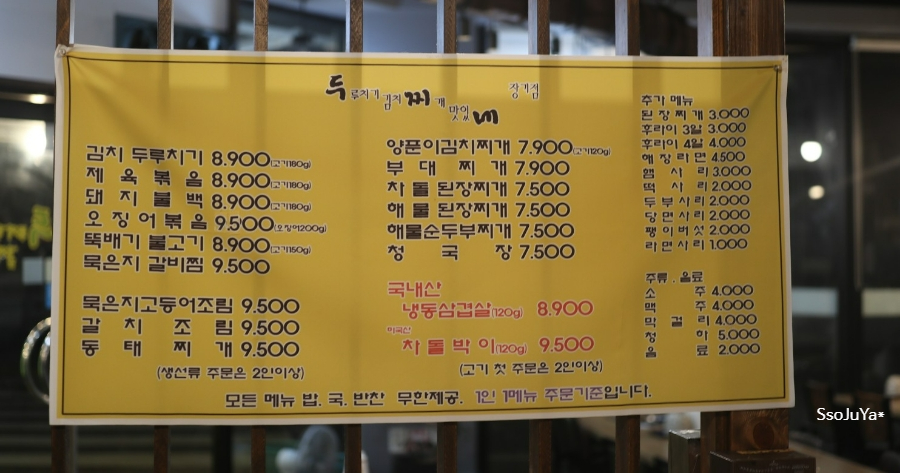 두루치기 김치찌개 맛있네 장기점
김치 두루치기 8.900(고기180g)
제육볶음 8.900(고기180g)
돼지불백 8.900(고기180g)
오징어볶음 9.500(오징어200g)
뚝배기 불고기 8.900(고기150g)
묵은지 갈비찜 9.500
묵은지고등어조림 9.500
갈치조림 9.500
동태찌개 9.500
(생선류 주문은 2인이상)
양푼이김치찌개 7.900(고기120g)
부대찌개 7.900
차돌된장찌개 7.500
해물된장찌개 7.500
해물순두부찌개 7.500
청국장 7.500
국내산
냉동삼겹살(120g) 8.900
미국산
차돌박이(120g) 9.500
(고기 첫 주문은 2인이상)
추가 메뉴
된장찌개 3.000
후라이 3알 3.000
후라이 4알 4.000
해장라면 4.500
햄사리 3.000
떡사리 2.000
두부사리 2.000
당면사리 2.000
팽이버섯 2.000
라면사리 1.000
주류 . 음료
소주 4.000
맥주 4.000
막걸리 4.000
청하 5.000
음료 2.000
모든 메뉴 밥. 국. 반찬 무한제공. 1인 1메뉴 주문기준입니다.
SsoJuYa*